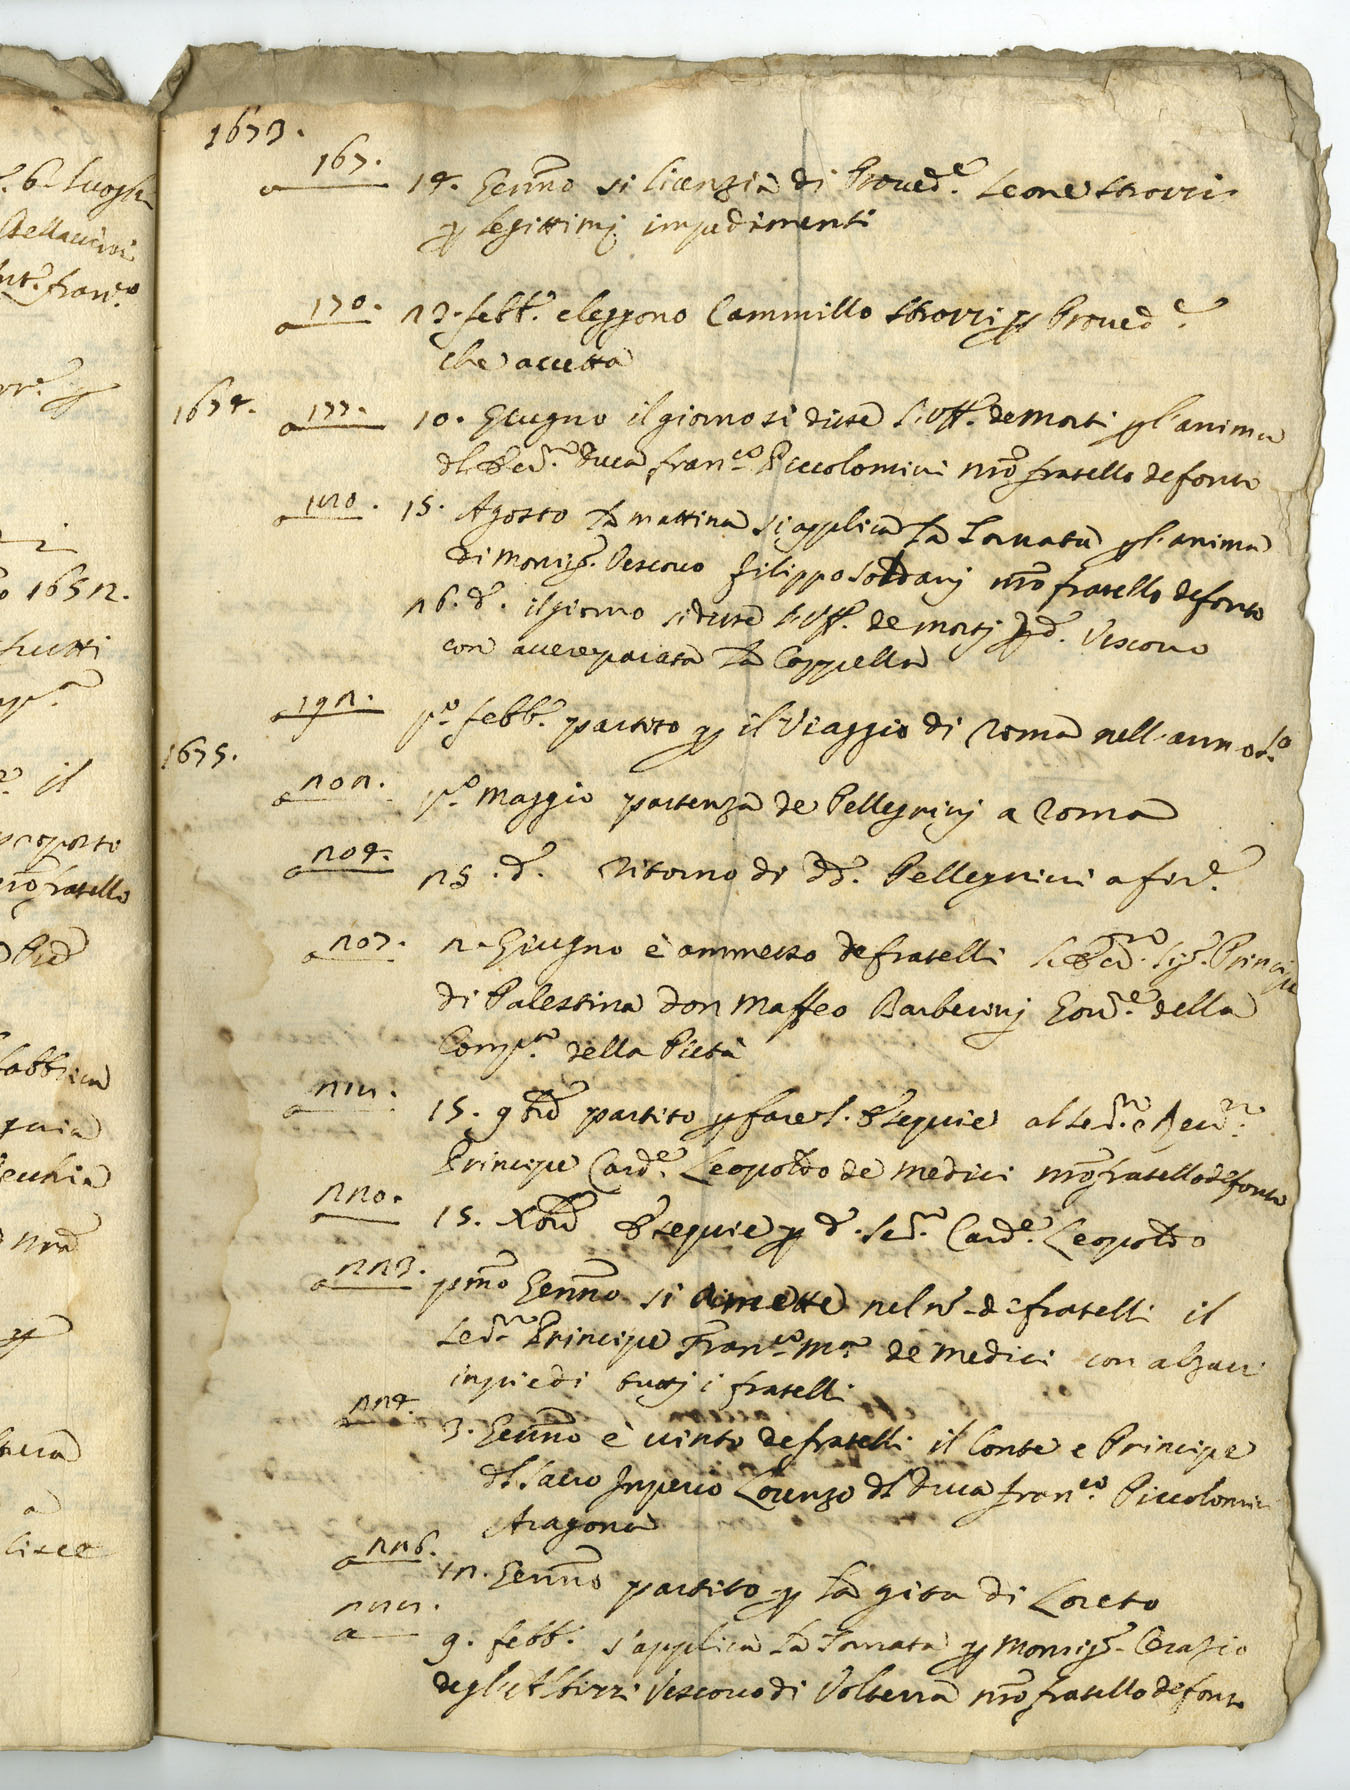 1673.
a 167. 14. Genn.o si licenzia di Proued.e Leone Strozzi
p legittimj impedimenti
a 170. 23. febb.o eleggono Cammillo Strozzi p Proued.e
che accetta
1674. a 177. 10. Giugno il giorno si disse l'Uff.o de Morti p l'anima
dl Duca Fran.co Piccolomini nro fratello defonto
a 15. Agosto la mattina si applica la Tornata p l'anima
di Monsig.r Vescouo Filippo Soldanj nro fratello defonto
26. d.o il giorno si disse l'Uff.o de mortj p d.o Vescouo
con la Cappella
a 192. p.o febb.o partito p il Viaggio di Roma nell'anno s.to
1675.
a 202. p.o Maggio partenza de Pellegrinj a Roma
a 204. 25. d.o Ritorno di dd.i Pellegrini a fir.e
a 207. 2. Giugno è ammesso de fratelli Sig.r Principe
di Palestina Don Maffeo Barberinj Gou.re della
Comp.a della Pietà
a 15. 9bre partito p fare l'esequie al Ser.mo e Reu.mo
Principe Card.e Leopoldo de Medici nro fratello defonto
a 220. 15. Xbre Esequie p d.o Ser.mo Card.e Leopoldo
a 223. pmo Genn.o si ammette nel n.o de fratelli il
Ser.mo Principe Fran.co M.a de Medici con alzarsi
in piedi tuttj i fratelli
a 224. 3. Genn.o è uinto de fratelli il Conte e Principe
dl Sacro Imperio Lorenzo dl Duca Fran.co Piccolomini
Aragona
a 226. 12. Genn.o partito p la gita di Loreto
a 9. febb.o s'applica la Tornata p Monsig.r Orazio
degli Albizzi Vescouo di Volterra nro fratello defonto